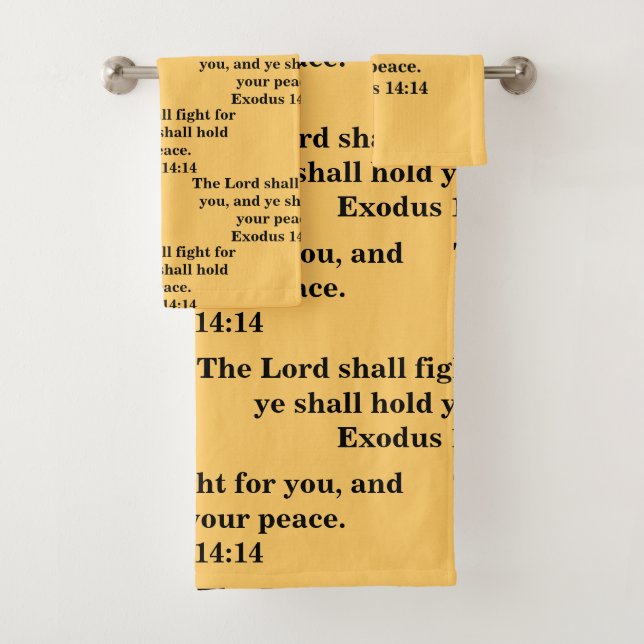 you, and ye sh
your peac
Exodus 14:
ll fight for
shall hold
eace.
14:14
The Lord shall
you, and ye sh
your peac
Exodus 14
ll fight for
shall hold
eace.
14:14
peace.
s 14:14
ace.
rd sha
shall hold y
Exodus 1
ou, and
ace.
14:14
The Lord shall fig
ye shall hold y
Exodus 1
ht for you, and
your peace.
14:14